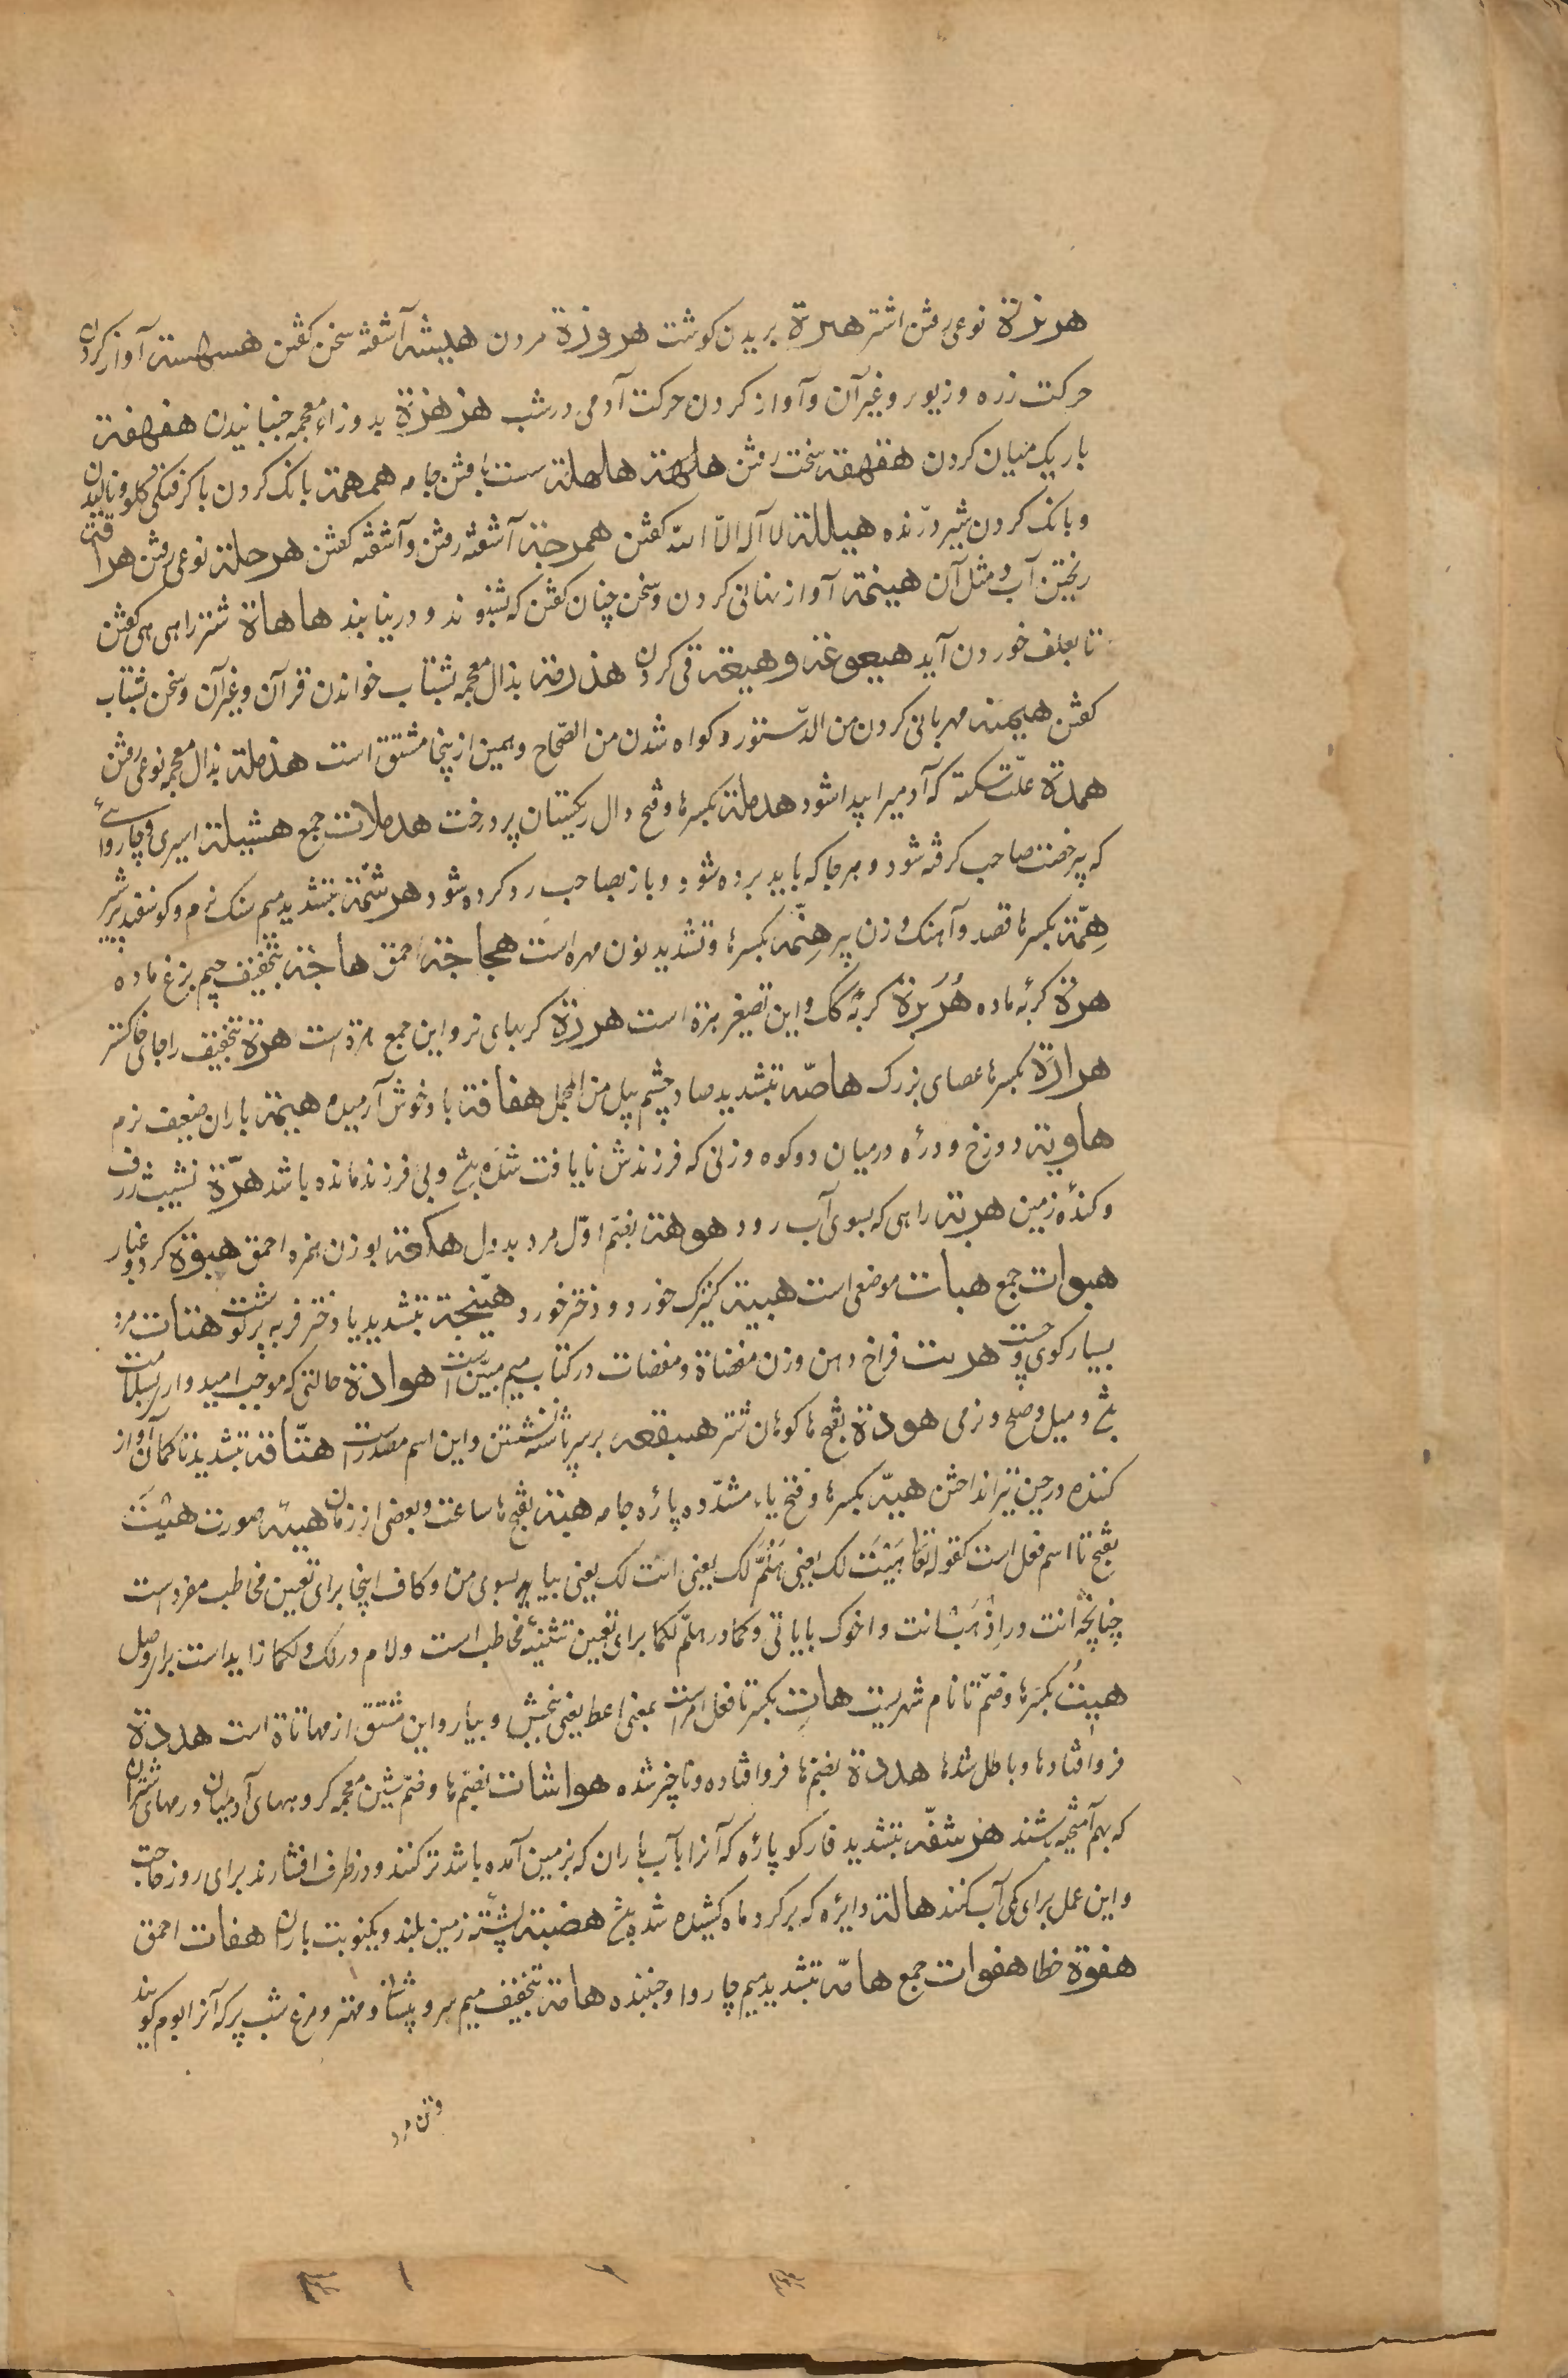 هربذة نوعی رفتن اشتر هبرة بریدن کوشت هروزة مردن هبیشة آشفته سخن کفتن هسهسة آواز کردن
حرکت زره و زیور و غیر آن و آواز کردن حرکت آدمی در شب هزهزة بدو زاء معجمه جنبانیدن هفهفة
باریک میان کردن هقهقة سخت رفتن هلهلة سست بافتن جامه همهمة بانک کردن با کرفتکی کلو و نالیدن
و بانک کردن شیر درنده هیللة لا آله الا الله کفتن همرجة آشفته رفتن و آشفته کفتن هرجلة نوعی رفتن هراقة
ریختن آب و مثل آن هینمة آواز نهانی کردن و سخن چنان کفتن که بشنوند و در نیابند هاهاة شتر را هی هی کفتن
تا بعلف خوردن آید هیعوعة و هیعة قی کردن هذرمة بذال معجمه بشتاب خواندن قرآن و غیر آن و سخن بشتاب
کفتن هیمنة مهربانی کردن من الدستور و کواه شدن من الصحاح و مهیمن ازینجا مشتق است هذملة بذال معجمه نوعی رفتن
همدة علت سکته که آدمیرا پیدا شود هدملة بکسرها و فتح دال ریکستان پر درخت هدملات جمع هشیلة اسیری و چاروای
که بی رخصت صاحب کرفته شود و هرجا که باید برده شود و باز بصاحب رد کرده شود هرشمة بتشدید میم سنک نرم و کوسفند پر شیر
همة بکسرها قصد و آهنک و زن پیر هنمة بکسرها و تشدید نون مهره است هجاجة احمق هاجة بتخفیف جیم بزغ ماده
هرة کربه ماده هریرة کربه کک و این تصغیر هرة است هررة کربهای نر و این جمع هرة است هرة بتخفیف را جای خاکستر
هراوة بکسرها عصای بزرک هاصة بتشدید صاد چشم پیل من المجمل هفافة باد خوش آرمیده هیمة باران ضعیف نرم
هاویة دوزخ و دره درمیان دو کوه و زنی که فرزندش نایافت شده باشد و بی فرزند مانده باشد هوة نشیب ژرف
و کنده زمین هربة راهی که بسوی آب رود هوهة بضم اول مرد بددل هکعة بوزن همزه احمق هبوة کرد و غبار
هبوات جمع هبات موضعی است هبیة کنیزک خورد و دختر خورد هبیخة بتشدید یا دختر فربه پر کوشت هتات مرد
بسیار کوی و چست هرت فراخ دهن وزن مفضاة و مفضات در کتاب میم مبین است هوادة حالتی که موجب امیدوار سلامت
باشد و میل و صلح و نرمی هودة بفتح ها کوهان شتر هبقعة بر سر پاشنه نشستن و این اسم مصدر است هتافة بتشدید تا کمان آواز
کننده در حین تیر انداختن هبة بکسرها و فتح یاء مشدده پاره جامه هنة بفتح ها ساعت و بعضی از زمان هیئة صورت هیت
بفتح تا اسم فعل است کقوله تعالی هیت لک یعنی هلم لک یعنی انت لک یعنی بیا بسوی من و کاف اینجا برای تعیین مخاطب مفرد است
چنانچه انت در اذهب انت و اخوک بایاتی و کما در هلم لکما برای تعیین تثنیه مخاطب است و لام در لک و لکما زاید است برای وصل
هیت بکسرها و ضم تا نام شهریست هات بکسر تا فعل امر است بمعنی اعط یعنی ببخش و بیار و این مشتق از مهاتاة است هددة
فروافتادها و باطل شدها هددة بضم ها فروافتاده و ناچیز شده هواشات بضم ها و ضم شین معجمه کروههای آدمیان و رمهای شتران
که بهم آمیخته باشند هزشفة بتشدید فا رکو پاره که آنرا بآب باران که بزمین آمده باشد تر کنند و در ظرف افشارند برای روز حاجت
و این عمل برای کمی آب کنند هالة دایره که بر کرد ماه کشیده شده باشد هضبة پشته زمین بلند و یکنوبت باران هفات احمق
هفوة خطا هفوات جمع هامة بتشدید میم چاروا و جنبنده هامة بتخفیف میم سر و پیشانی و مهتر و مرغ شب پر که آنرا بوم کویند